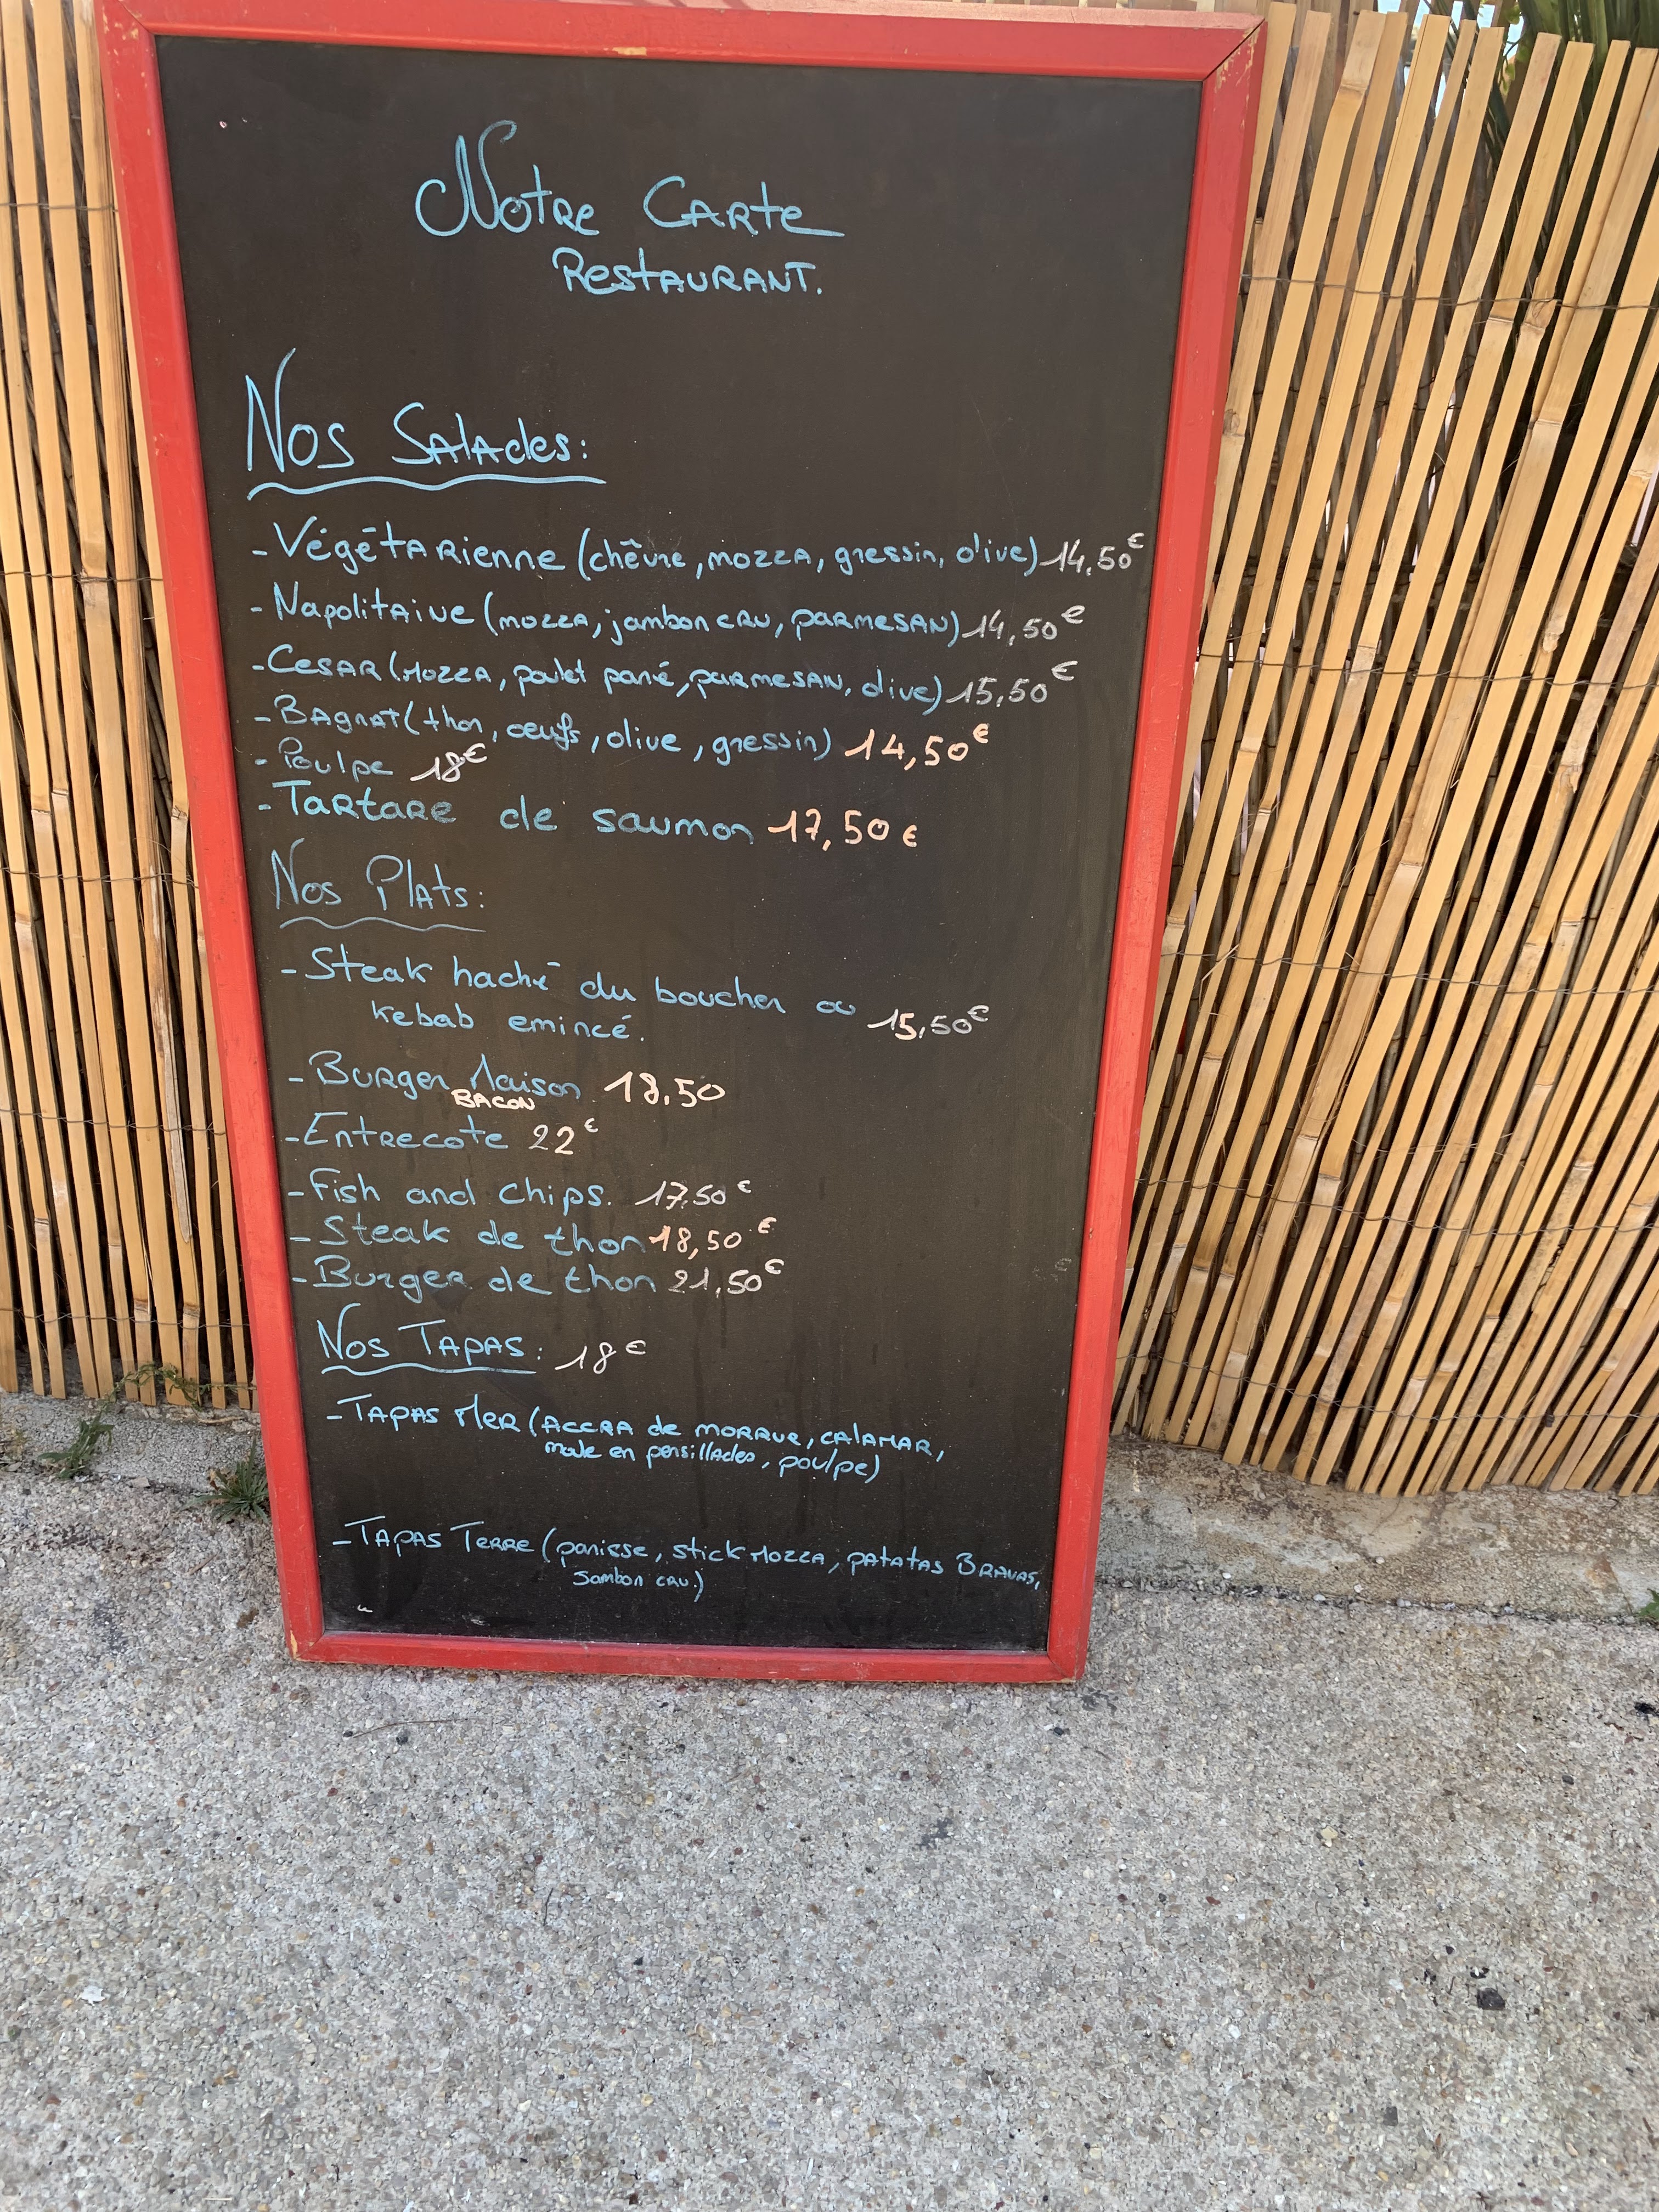 Notre Carte
Restaurant.
Nos Salades:
- Végétarienne (chèvre, mozza, gressin, olive) 14,50€
- Napolitaine (mozza, jambon cru, parmesan) 14,50€
- Cesar (Mozza, poulet pané, parmesan, olive) 15,50€
- Bagnat (thon, oeufs, olive, gressin) 14,50€
- Poulpe 18€
- Tartare de saumon 17,50€
Nos Plats:
- Steak haché du boucher ou
kebab emincé. 15,50€
- Burger Maison 18,50
BACON
- Entrecote 22€
- Fish and chips. 17,50€
- Steak de thon 18,50€
- Burger de thon 21,50€
Nos Tapas: 18€
- Tapas Mer (Accra de morrue, calamar,
moule en persillades, poulpe)
- Tapas Terre (panisse, stick Mozza, patatas Bravas,
Jambon cru.)